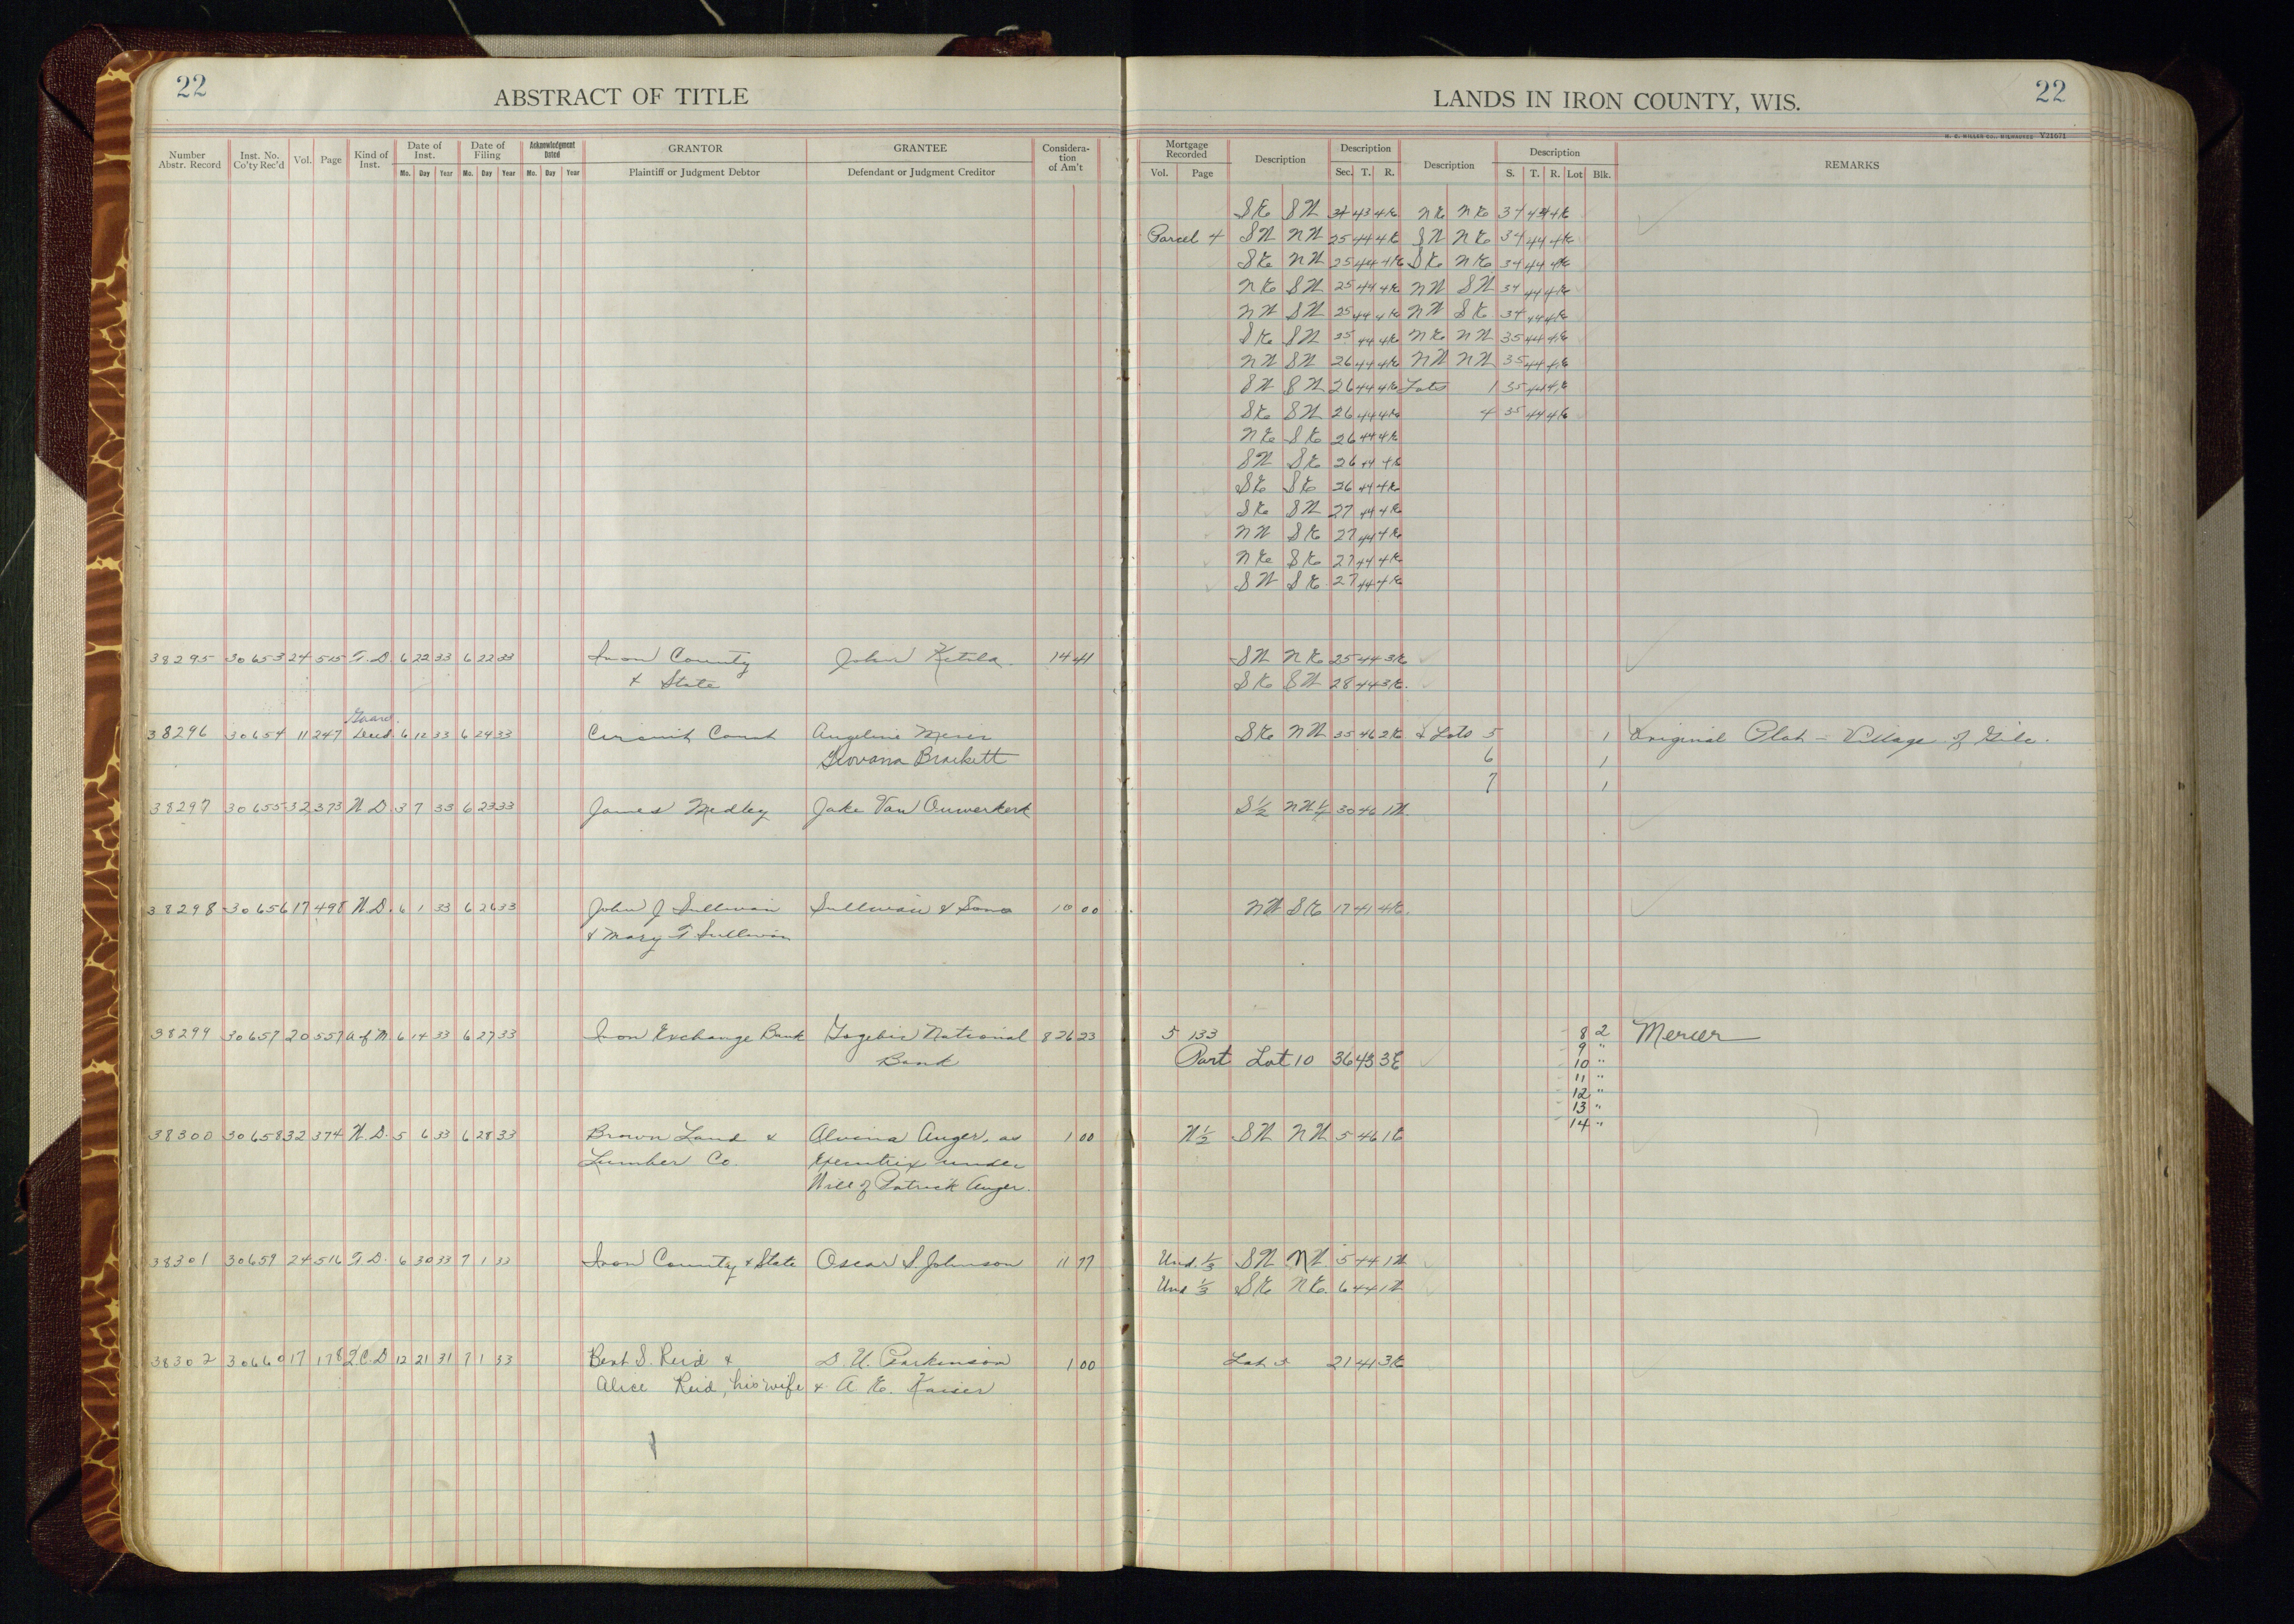 22
ABSTRACT OF TITLE
LANDS IN IRON COUNTY, WIS.
22
H. C. MILLER CO., MILWAUKEE Y21671
Number Abstr. Record | Inst. No. Co'ty Rec'd | Vol. | Page | Kind of Inst. | Date of Inst. Mo. Day Year | Date of Filing Mo. Day Year | Acknowledgment Dated Mo. Day Year | GRANTOR Plaintiff or Judgment Debtor | GRANTEE Defendant or Judgment Creditor | Considera- tion of Am't | Mortgage Recorded Vol. Page | Description | Description Sec. T. R. | Description | Description S. T. R. Lot Blk. | REMARKS
SE SW 34 43 4E NE NE 34 44 4E
Parcel 4 SW NW 25 44 4E SW NE 34 44 4E
SE NW 25 44 4E SE NE 34 44 4E
NE SW 25 44 4E NW SW 34 44 4E
NW SW 25 44 4E NW SE 34 44 4E
SE SW 35 44 4E NE NW 35 44 4E
NW SW 26 44 4E NW NW 35 44 4E
SW SW 26 44 4E Lots 1 35 44 4E
SE SW 26 44 4E 4 35 44 4E
NE SE 26 44 4E
SW SE 26 44 4E
SE SE 26 44 4E
SE SW 27 44 4E
NW SE 27 44 4E
NE SE 27 44 4E
SW SE 27 44 4E
38295 30653 24 515 T.D. 6 22 33 6 22 33 Iron County John Ketola 14 41 SW NE 25 44 3E
& State SE SW 28 44 3E.
Guard.
38296 30654 11 247 Deed. 6 12 33 6 24 33 Circuit Court Angeline SE NW 35 46 2E & Lots 5 1 Original Plat - Village of Gile.
Giovana Brackett 6 1
7 1
38297 30655 32 373 W D 3 7 33 6 23 33 James Medley Jake Van Ouwerkerk S½ NW¼ 30 46 1W.
38298 30656 17 498 W.D. 6 1 33 6 26 33 John J Sullivan Sullivan & Sons 10 00 NW SE 17 41 4E.
& Mary T Sullivan
38299 30657 20 557 A of M 6 14 33 6 27 33 Iron Exchange Bank Gogebic National 826 23 5 133 8 2 Mercer
Bank Part Lot 10 36 43 3E 9 "
10 "
11 "
12 "
13 "
14 "
38300 30658 32 374 W.D. 5 6 33 6 28 33 Brown Land & Alvina Auger, as 1 00 W½ SW NW 5 46 1E
Lumber Co. Executrix under
Will of Patrick Auger.
38301 30659 24 516 T.D. 6 30 33 7 1 33 Iron County & State Oscar S. Johnson 11 77 Und. ⅓ SW NW 5 44 1W
Und ⅓ SE NE. 6 44 1W
38302 30660 17 178 Q.C.D 12 21 31 7 1 33 Bert S. Reid & D. U. Parkinson 1 00 Lot 21 41 3E
Alice Reid, his wife & A. E. Kaiser